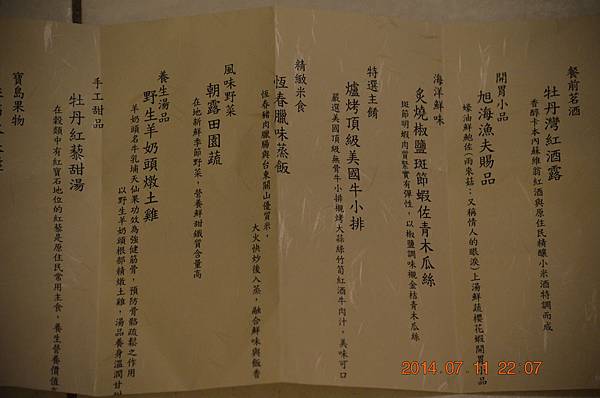 餐前茗酒
牡丹灣紅酒露
香醇卡本內蘇維翁紅酒與原住民精釀小米酒特調而成
開胃小品
旭海漁夫賜品
蠔油鮮鮑佐(雨來菇：又稱情人的眼淚)上湯鮮蔬櫻花蝦開胃品
海洋鮮味
炙燒椒鹽斑節蝦佐青木瓜絲
斑節明蝦肉質緊實有彈性，以椒鹽調味襯金桔青木瓜絲
特選主餚
爐烤頂級美國牛小排
嚴選美國頂級無骨牛小排襯烤大蒜綠竹筍紅酒牛肉汁，美味可口
精緻米食
恆春臘味蒸飯
恆春豬肉臘腸與台東關山優質米，
大火快炒後入蒸，融合鮮味與飯香
風味野菜
朝露田園蔬
在地新鮮季節野菜，營養鮮甜鐵質含量高
養生湯品
野生羊奶頭燉土雞
羊奶頭名牛乳埔天仙果功效為強健筋骨，預防骨骼疏鬆之作用
以野生羊奶頭根部精燉土雞，湯品養身溫潤甘甜
手工甜品
牡丹紅藜甜湯
在穀類中有紅寶石地位的紅藜是原住民常用主食，養生營養價值高
寶島果物
2014.07.11 22:07